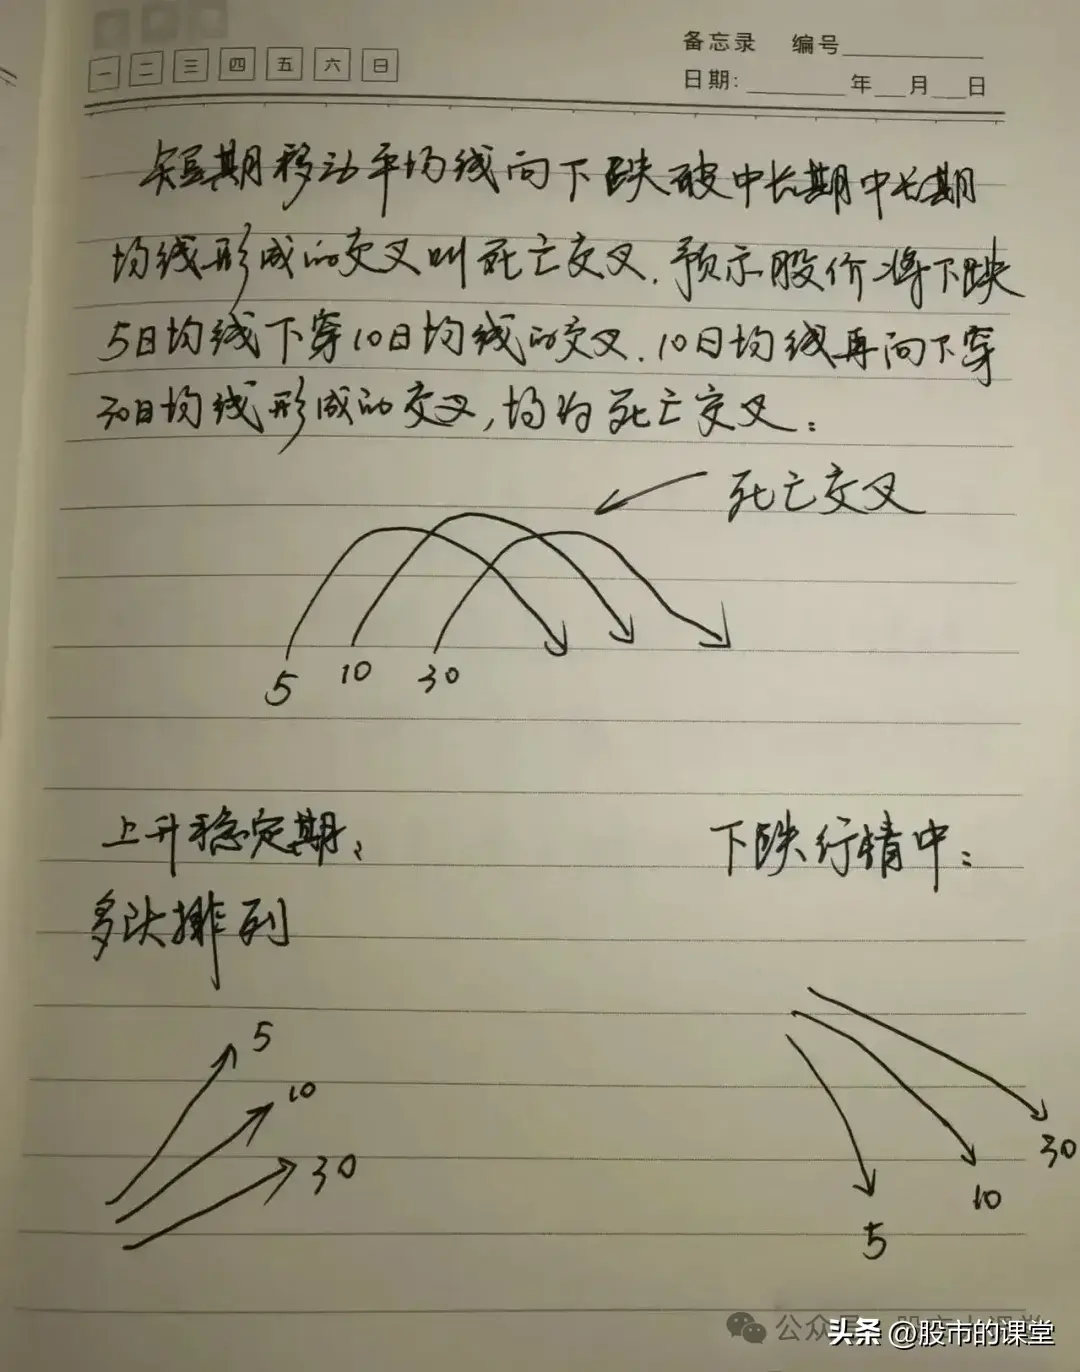 一 二 三 四 五 六 日
备忘录 编号
日期: 年 月 日
短期移动平均线向下跌破中长期中长期
均线形成的交叉叫死亡交叉.预示股价将下跌
5日均线下穿10日均线的交叉.10日均线再向下穿
30日均线形成的交叉,均为死亡交叉:
死亡交叉
5 10 30
上升稳定期:
下跌行情中:
多头排列
5
10
30
30
10
5
公众号
头条 @股市的课堂